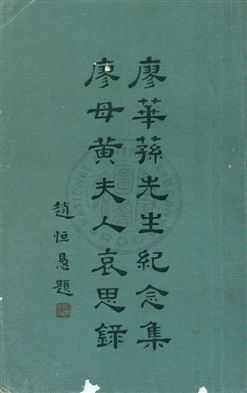 廖華蓀先生紀念集
廖母黃夫人哀思錄
趙恒惖題